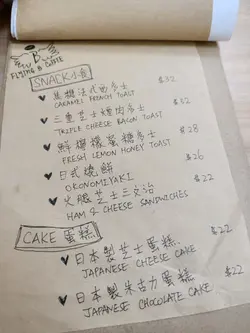 B
FLYING B CAFFE
SNACK小食
焦糖法式西多士 $32
CARAMEL FRENCH TOAST
三重芝士煙肉多士 $32
TRIPLE CHEESE BACON TOAST
鮮檸檬蜜糖多士 $28
FRESH LEMON HONEY TOAST
日式燒餅 $26
OKONOMIYAKI
火腿芝士三文治 $22
HAM & CHEESE SANDWICHES
CAKE 蛋糕
日本製芝士蛋糕 $22
JAPANESE CHEESE CAKE
日本製朱古力蛋糕 $22
JAPANESE CHOCOLATE CAKE